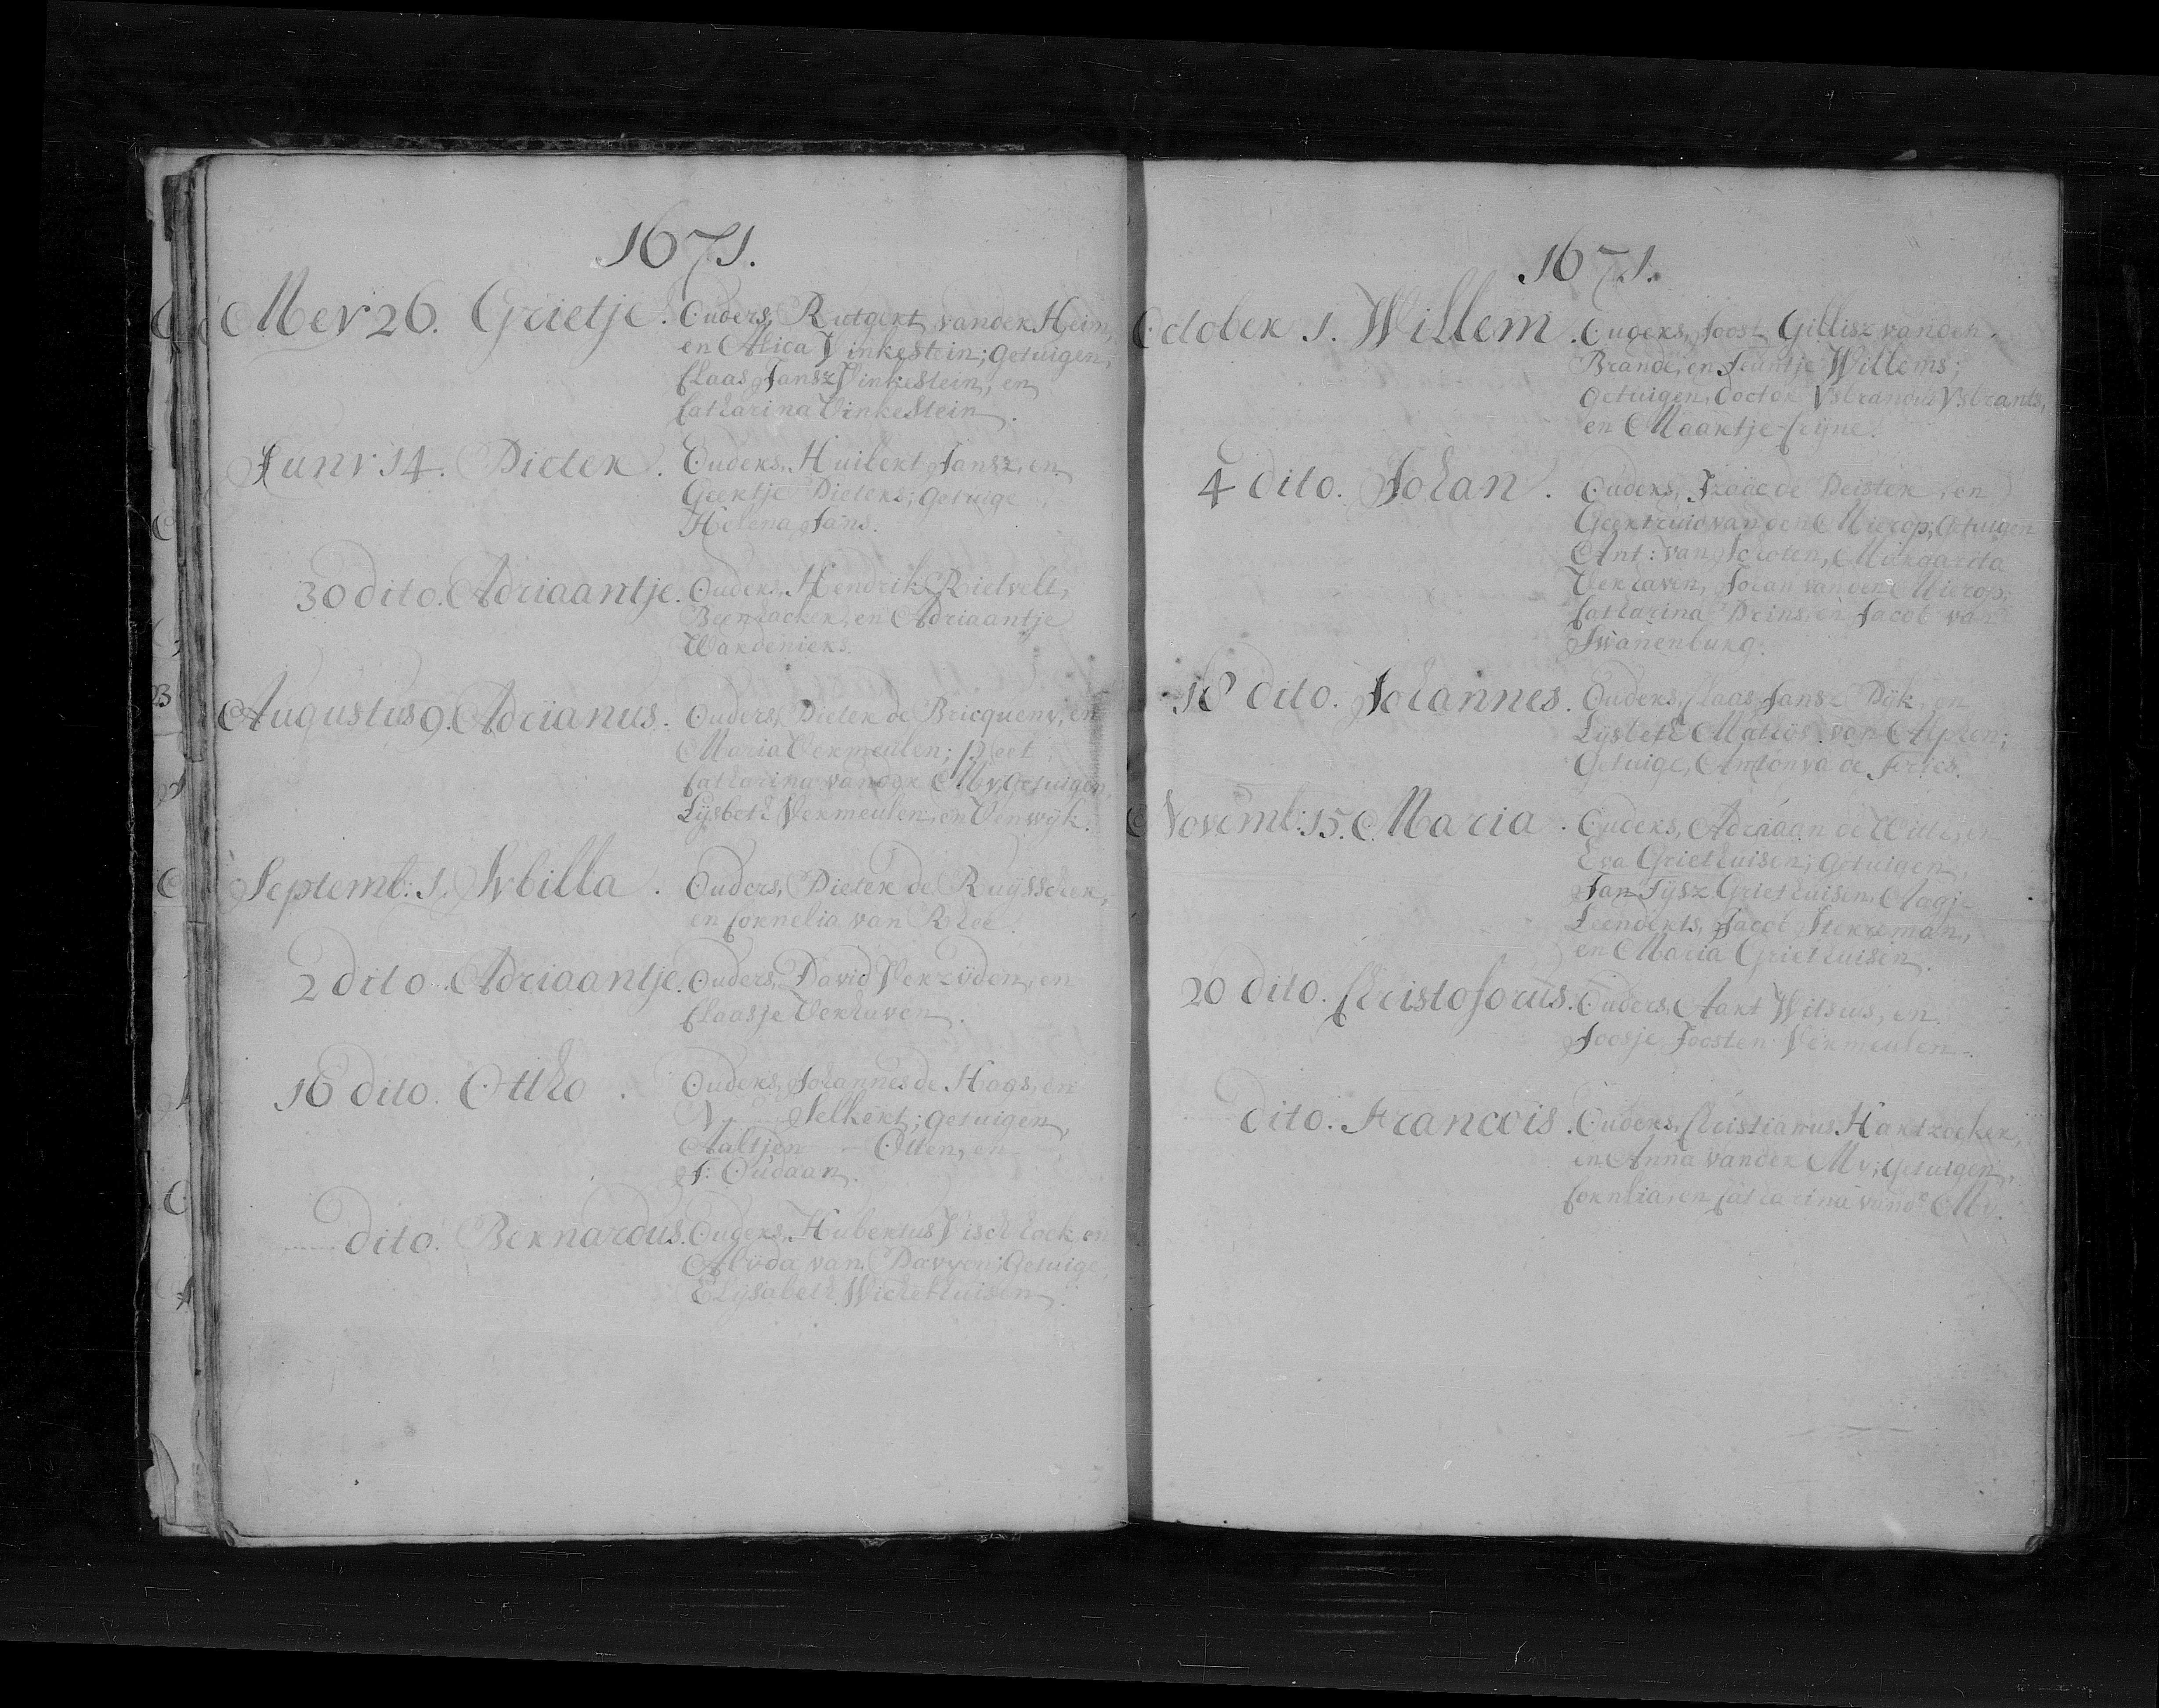 1671.
Mey 26. Grietje. Ouders, Rutgert vander Heim,
en Alica Vinkestein; getuigen,
Claas Jansz Vinkestein, en
Catharina Vinkestein.
Juny 14. Pieter. Ouders, Huibert Jansz, en
Geertje Pieters; getuige,
Helena Jans.
30 dito. Adriaantje. Ouders, Hendrik Rietvelt,
Beenhacker, en Adriaantje
Wardeniers.
Augustus 9. Adrianus. Ouders, Pieter de Bricqueny, en
Maria Vermeulen; Peet,
Catharina vander My, getuigen,
Lijsbeth Vermeulen, en Verwijk.
Septemb: 1. Sybilla. Ouders, Pieter de Ruijsscher,
en Cornelia van Rhee.
2 dito. Adriaantje. Ouders, David Verzijden, en
Claasje Verhaven.
16 dito. Ottho. Ouders, Johannes de Haas, en
N. Selkert; getuigen,
Aaltjen - Otten, en
J: Oudaan.
dito. Bernardus. Ouders, Hubertus Visch hoek, en
Alyda van Davyen; Getuige,
Elijsabeth Wichethuisen.
1671.
October 1. Willem. Ouders, Joost Gillisz vanden
Brande, en Teuntje Willems;
getuigen, Doctor Ysbrandus Ysbrants,
en Maartje Crijne.
4 dito. Johan. Ouders, Izaäc de Peister, en
Geertruid vanden Mierop; Getuigen
Ant: van Schoten, Margarita
Verhaven, Johan vanden Mierop,
Catharina Peins, en Jacob van
Swanenburg.
18 dito. Johannes. Ouders, Claas Jansz Pak, en
Lijsbeth Mathijs van Alphen;
Getuige, Antonya de Fories.
Novemb: 15. Maria. Ouders, Adriaan de Witte, en
Eva Griethuisen; Getuigen,
Jan Tijsz Griethuisen, Aagje
Leenderts, Jacob Sterreman,
en Maria Griethuisen.
20 dito. Christoforus. Ouders, Aart Witsius, en
Joosje Joosten Vermeulen.
dito. Francois. Ouders, Christianus Hartzoeker,
en Anna vander My; getuigen,
Cornlia, en Catharina vandr My.